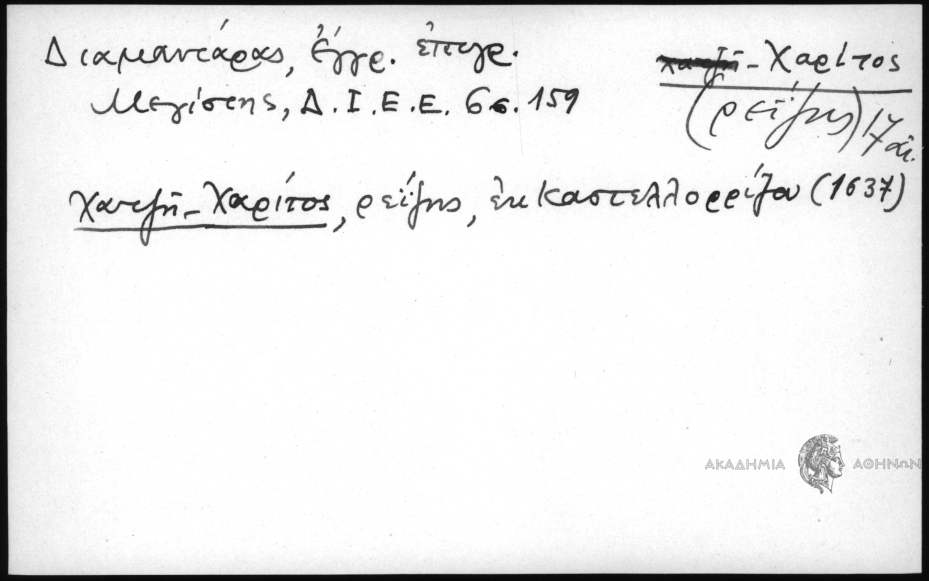 Διαμαντάρας, ἔγγρ. ἐπιγρ.
Μεγίστης, Δ.Ι.Ε.Ε. 6 σ. 159
Χατζῆ-Χαρίτος
(ρεΐζης) 17 αἰ.
Χατζῆ-Χαρίτος, ρεΐζης, ἐκ Καστελλορρίζου (1637)
ΑΚΑΔΗΜΙΑ ΑΘΗΝΩΝ